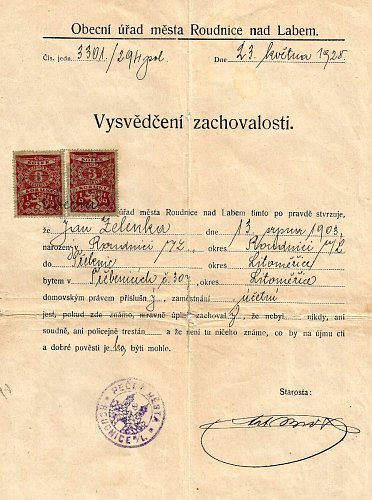 Obecní úřad města Roudnice nad Labem.
Čís. jedn. 3301/29 pol. Dne 23. května 1928
Vysvědčení zachovalosti.
úřad města Roudnice nad Labem tímto po pravdě stvrzuje,
že Jan Zelenka dne 13. srpna 1903
narozený v Roudnici n/L okres Roudnici n/L
do okres Litoměřice
bytem v Třebenicích č. 303 okres Litoměřice
domovským právem příslušný, zaměstnání účetní
jest, pokud zde známo, mravně úplně zachovalý, že nebyl nikdy, ani
soudně, ani policejně trestán a že není tu ničeho známo, co by na újmu cti
a dobré pověsti jeho, býti mohlo.
Starosta:
PEČEŤ MĚSTA
ROUDNICE n/L.